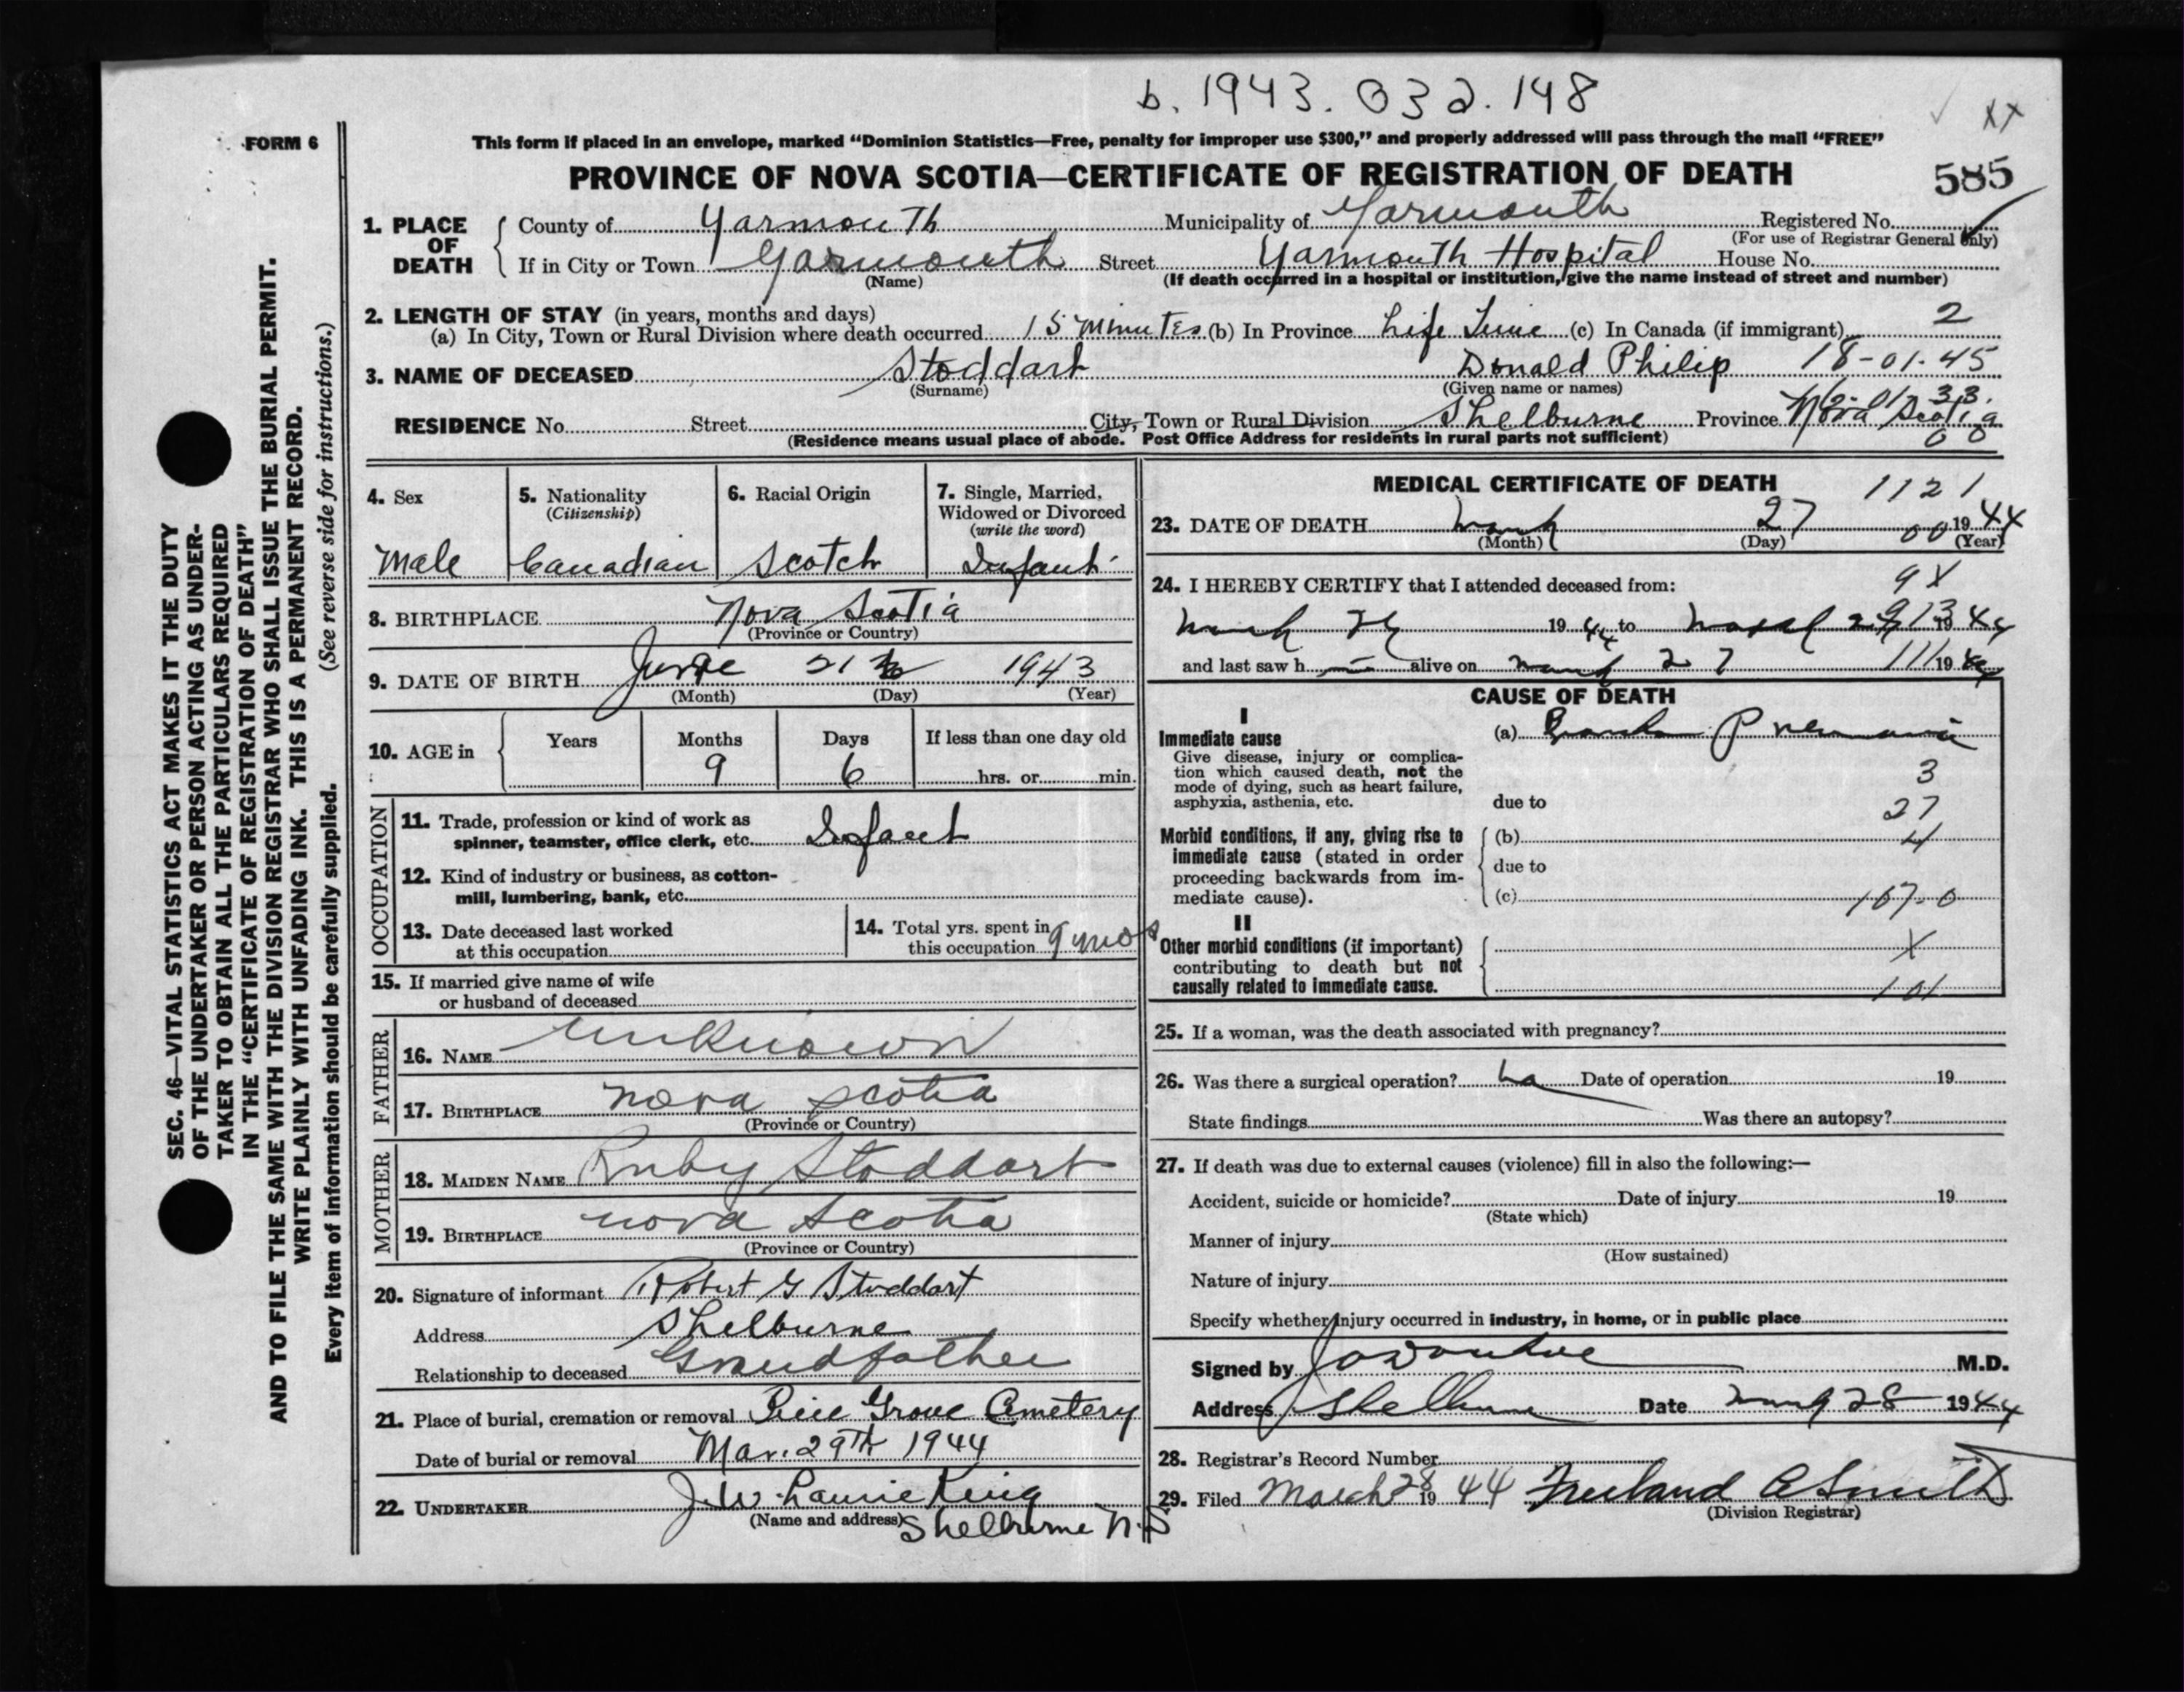 b. 1943. 032. 148
XX
FORM 6
This form if placed in an envelope, marked “Dominion Statistics—Free, penalty for improper use $300,” and properly addressed will pass through the mail “FREE”
PROVINCE OF NOVA SCOTIA—CERTIFICATE OF REGISTRATION OF DEATH
585
1. PLACE OF DEATH
County of Yarmouth Municipality of Yarmouth Registered No.
(For use of Registrar General only)
If in City or Town Yarmouth Street Yarmouth Hospital House No.
(Name) (If death occurred in a hospital or institution, give the name instead of street and number)
2. LENGTH OF STAY (in years, months and days)
(a) In City, Town or Rural Division where death occurred 15 minutes (b) In Province Life Time (c) In Canada (if immigrant) 2
3. NAME OF DECEASED Stoddart Donald Philip 18-01-45
(Surname) (Given name or names)
RESIDENCE No. Street City, Town or Rural Division Shelburne Province Nova Scotia
(Residence means usual place of abode. Post Office Address for residents in rural parts not sufficient) 0 0
4. Sex
Male
5. Nationality
(Citizenship)
Canadian
6. Racial Origin
Scotch
7. Single, Married, Widowed or Divorced
(write the word)
Infant
8. BIRTHPLACE Nova Scotia
(Province or Country)
9. DATE OF BIRTH June 21 1943
(Month) (Day) (Year)
10. AGE in Years Months Days If less than one day old
9 6 hrs. or min.
OCCUPATION
11. Trade, profession or kind of work as
spinner, teamster, office clerk, etc. Infant
12. Kind of industry or business, as cotton-
mill, lumbering, bank, etc.
13. Date deceased last worked
at this occupation
14. Total yrs. spent in
this occupation 9 mos
15. If married give name of wife
or husband of deceased
FATHER
16. NAME Unknown
17. BIRTHPLACE Nova Scotia
(Province or Country)
MOTHER
18. MAIDEN NAME Ruby Stoddart
19. BIRTHPLACE Nova Scotia
(Province or Country)
20. Signature of informant Robert G Stoddart
Address Shelburne
Relationship to deceased Grandfather
21. Place of burial, cremation or removal Pine Grove Cemetery
Date of burial or removal Mar. 29th 1944
22. UNDERTAKER J. W. Laurie King
(Name and address) Shelburne N.S
MEDICAL CERTIFICATE OF DEATH 1121
23. DATE OF DEATH March 27 00 1944
(Month) (Day) (Year)
24. I HEREBY CERTIFY that I attended deceased from: 9X
March 1944 to March 1944
and last saw h alive on March 27 111 1944
CAUSE OF DEATH
I
Immediate cause
Give disease, injury or complica-
tion which caused death, not the
mode of dying, such as heart failure,
asphyxia, asthenia, etc.
(a) Broncho Pneumonia
3
due to 27
Morbid conditions, if any, giving rise to
immediate cause (stated in order
proceeding backwards from im-
mediate cause).
(b) 4
due to
(c) 107-0
II
Other morbid conditions (if important)
contributing to death but not
causally related to immediate cause.
X
101
25. If a woman, was the death associated with pregnancy?
26. Was there a surgical operation? No Date of operation 19
State findings Was there an autopsy?
27. If death was due to external causes (violence) fill in also the following:—
Accident, suicide or homicide? Date of injury 19
(State which)
Manner of injury
(How sustained)
Nature of injury
Specify whether injury occurred in industry, in home, or in public place
Signed by M.D.
Address Shelburne Date March 28 1944
28. Registrar's Record Number
29. Filed March 28 1944 Freeland A Smith
(Division Registrar)
SEC. 46—VITAL STATISTICS ACT MAKES IT THE DUTY
OF THE UNDERTAKER OR PERSON ACTING AS UNDER-
TAKER TO OBTAIN ALL THE PARTICULARS REQUIRED
IN THE “CERTIFICATE OF REGISTRATION OF DEATH”
AND TO FILE THE SAME WITH THE DIVISION REGISTRAR WHO SHALL ISSUE THE BURIAL PERMIT.
WRITE PLAINLY WITH UNFADING INK. THIS IS A PERMANENT RECORD.
Every item of information should be carefully supplied. (See reverse side for instructions.)